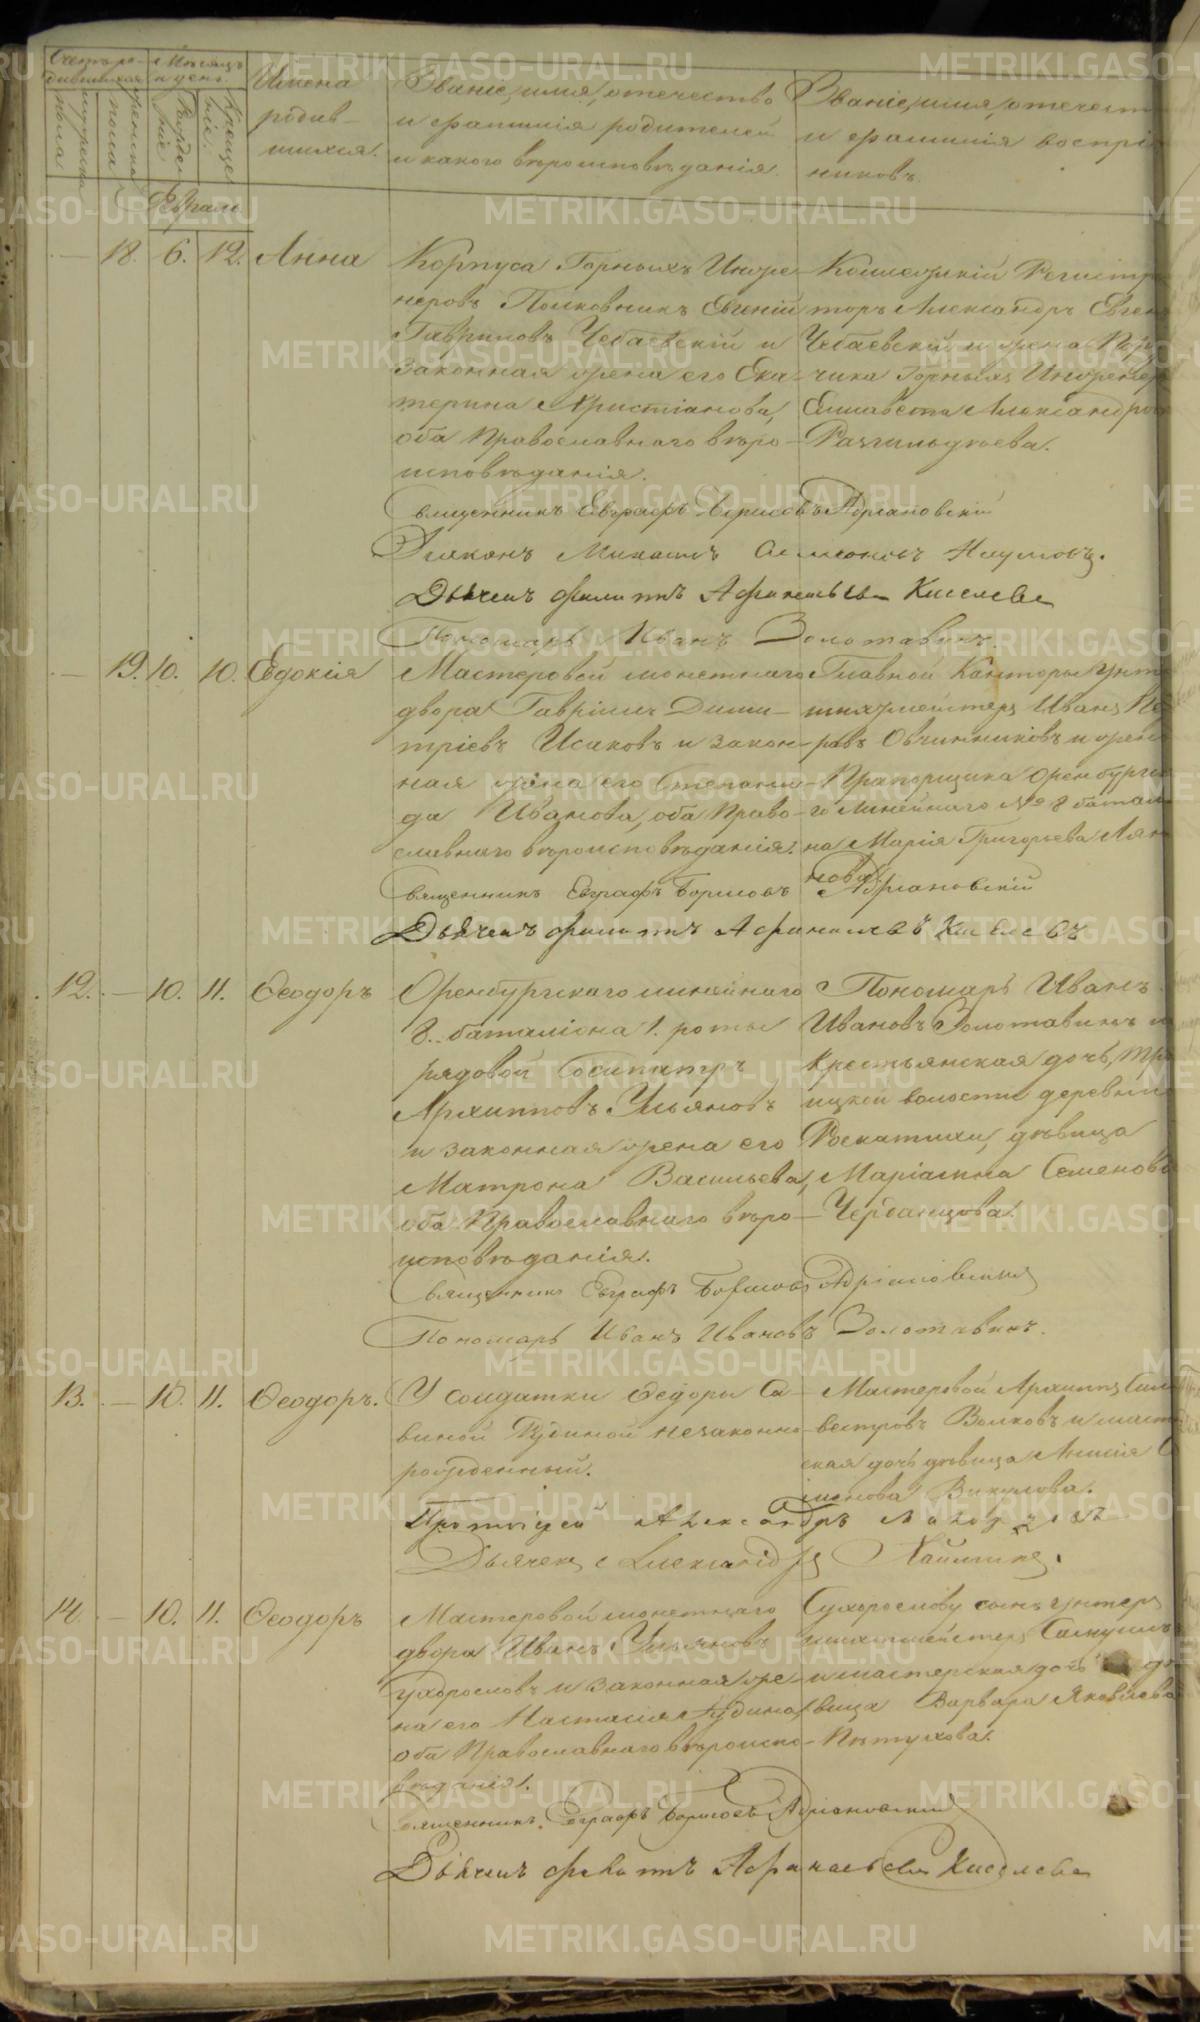 Счетъ ро-
дившихся
Мѣсяцъ
и день.
мужеска
пола
женска
пола
Рожде-
ніе
Креще-
ніе.
Имена
родив-
шихся.
Званіе, имя, отечество
и фамилія родителей
и какого вѣроисповѣданія.
Званіе, имя, отечест
и фамилія воспрі
никовъ.
Февраль
— 18. 6. 12. Анна
Корпуса Горныхъ Инже-
неровъ Полковникъ Евгеній
Гавриловъ Чебаевскій и
законная жена его Ека-
терина Христіанова,
оба Православнаго вѣро-
исповѣданія.
Коллежскій Регистр
торъ Александръ Евген
Чебаевскій и жена Пору
чика Горныхъ Инженер
Елисавета Александро
Разгильдѣева.
Священникъ Евграфъ Борисовъ Адріановскій
Діаконъ Михаилъ Симеоновъ Наумовъ.
Дьячекъ Филиппъ Афанасьевъ Киселевъ
Пономарь Иванъ Золотавинъ.
— 19. 10. 10. Евдокія
Мастеровой монетнаго
двора Гавріилъ Дими-
тріевъ Исаковъ и закон-
ная жена его Степани-
да Иванова, оба Право-
славнаго вѣроисповѣданія.
Главной Канторы Унте
шихтмейстеръ Иванъ Пе
ровъ Овчинниковъ и жена
Прапорщика Оренбургска
го Линейнаго № 8 батал
на Марія Григорьева Лян
нова.
Священникъ Евграфъ Борисовъ Адріановскій
Дьячекъ Филиппъ Афанасьевъ Киселевъ
12. — 10. 11. Ѳеодоръ
Оренбургскаго линейнаго
8. баталіона 1. роты
рядовой Сосипатръ
Архиповъ Ульяновъ
и законная жена его
Матрона Васильева,
оба Православнаго вѣро-
исповѣданія.
Пономарь Иванъ
Ивановъ Золотавинъ и
крестьянская дочь, Тро
ицкой волости деревни
Роскатихи, дѣвица
Маріамна Семенова
Чербанцова.
Священникъ Евграфъ Борисовъ Адріановскій
Пономарь Иванъ Ивановъ Золотавинъ.
13. — 10. 11. Ѳеодоръ.
У солдатки Ѳедоры Са-
виной Рудиной незаконно
рожденный.
Мастеровой Архипъ Сил
вестровъ Волковъ и масте
ская дочь дѣвица Лидія С
іонова Викулова.
Протоіерей Александръ
Дьячекъ Александръ
14. — 10. 11. Ѳеодоръ
Мастеровой монетнаго
двора Иванъ Ульяновъ
Сухорословъ и законная же-
на его Настасія Аудина
оба Православнаго вѣроиспо-
вѣданія.
Сухорослову сынъ Унтеръ
шихтмейстеръ
и мастерская дочь дѣ
вица Варвара Яковлева
Пѣтухова.
Священникъ Евграфъ Борисовъ Адріановскій
Дьячекъ Филиппъ Афанасьевъ Киселевъ
METRIKI.GASO-URAL.RU